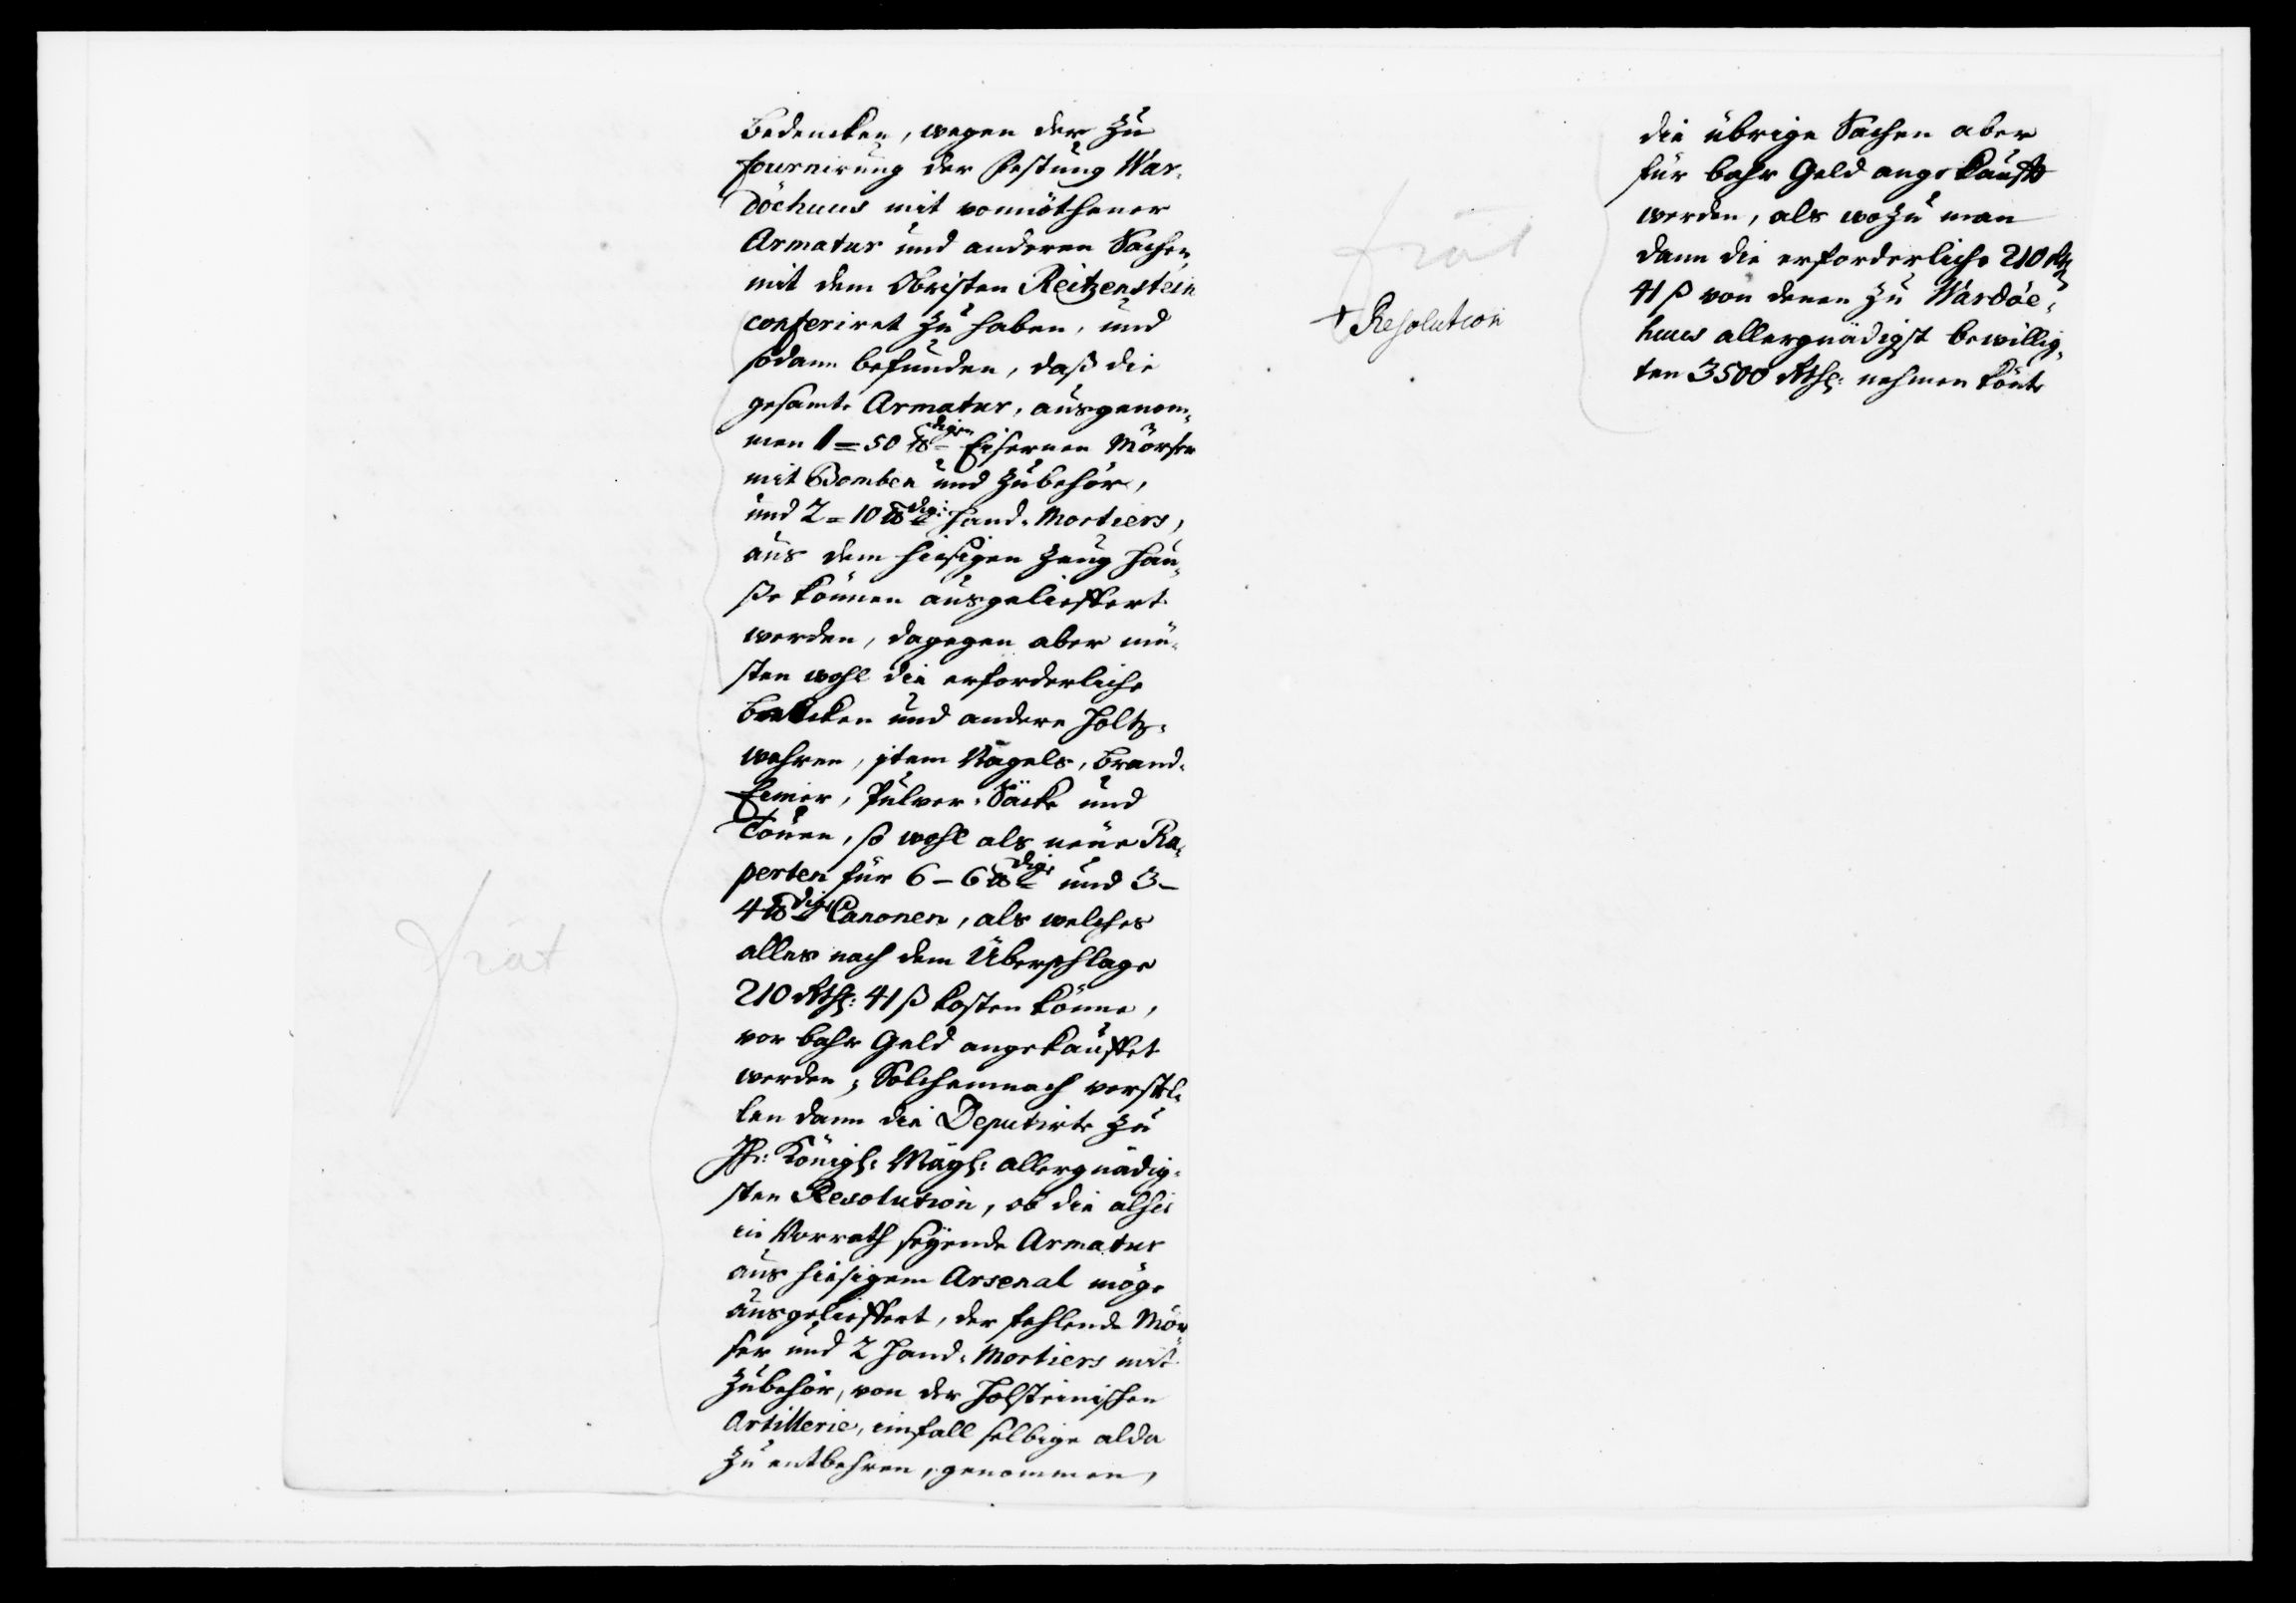 bedencken, wegen der Zu
fournirung der Festung War-
döehuus mit vonnöthener
Armatur und anderen Sachen,
mit dem Obristen Reitzenstein
conferiret zu haben, und
sodann befunden, daß die
gesamte Armatur, ausgenom-
men 1 = 50 ℔digen Eisernen Mörser
mit Bomben und Zubehör,
und 2 = 10 ℔dige Hand-Mortiers,
aus dem hiesigen Zeug Hau-
ße können ausgelieffert
werden, dagegen aber mü-
sten wohl die erforderliche
Balcken und andere Holtz-
wahren, item Nägels, Brand-
Eimer, Pulver-Säcke und
Tonnen, so wohl als neue Ra-
perten für 6 - 6 ℔dige und 3 -
4 ℔dige Canonen, als welches
alles nach dem Überschlage
210 Rthl: 41 ß kosten könne,
vor bahr Geld angekauffet
werden; Solchemnach verstel-
len dann die Deputirte zu
Ihr: Königl: Mayt: allergnädig-
sten Resolution, ob die alhie
in Vorrath seyende Armatur
aus hiesigem Arsenal möge
ausgelieffert, der fehlende Mör-
ser und 2 Hand-Mortiers mit
Zubehör, von der Holsteinischen
Artillerie, imfall selbige alda
zu entbehren, genommen,
die übrige Sachen aber
für bahr Geld angekaufft
werden, als wozu man
dann die erforderliche 210 Rthl
41 ß von denen zu Wardöe-
huus allergnädigst bewillig-
ten 3500 Rthl: nehmen könte
+ Resolution